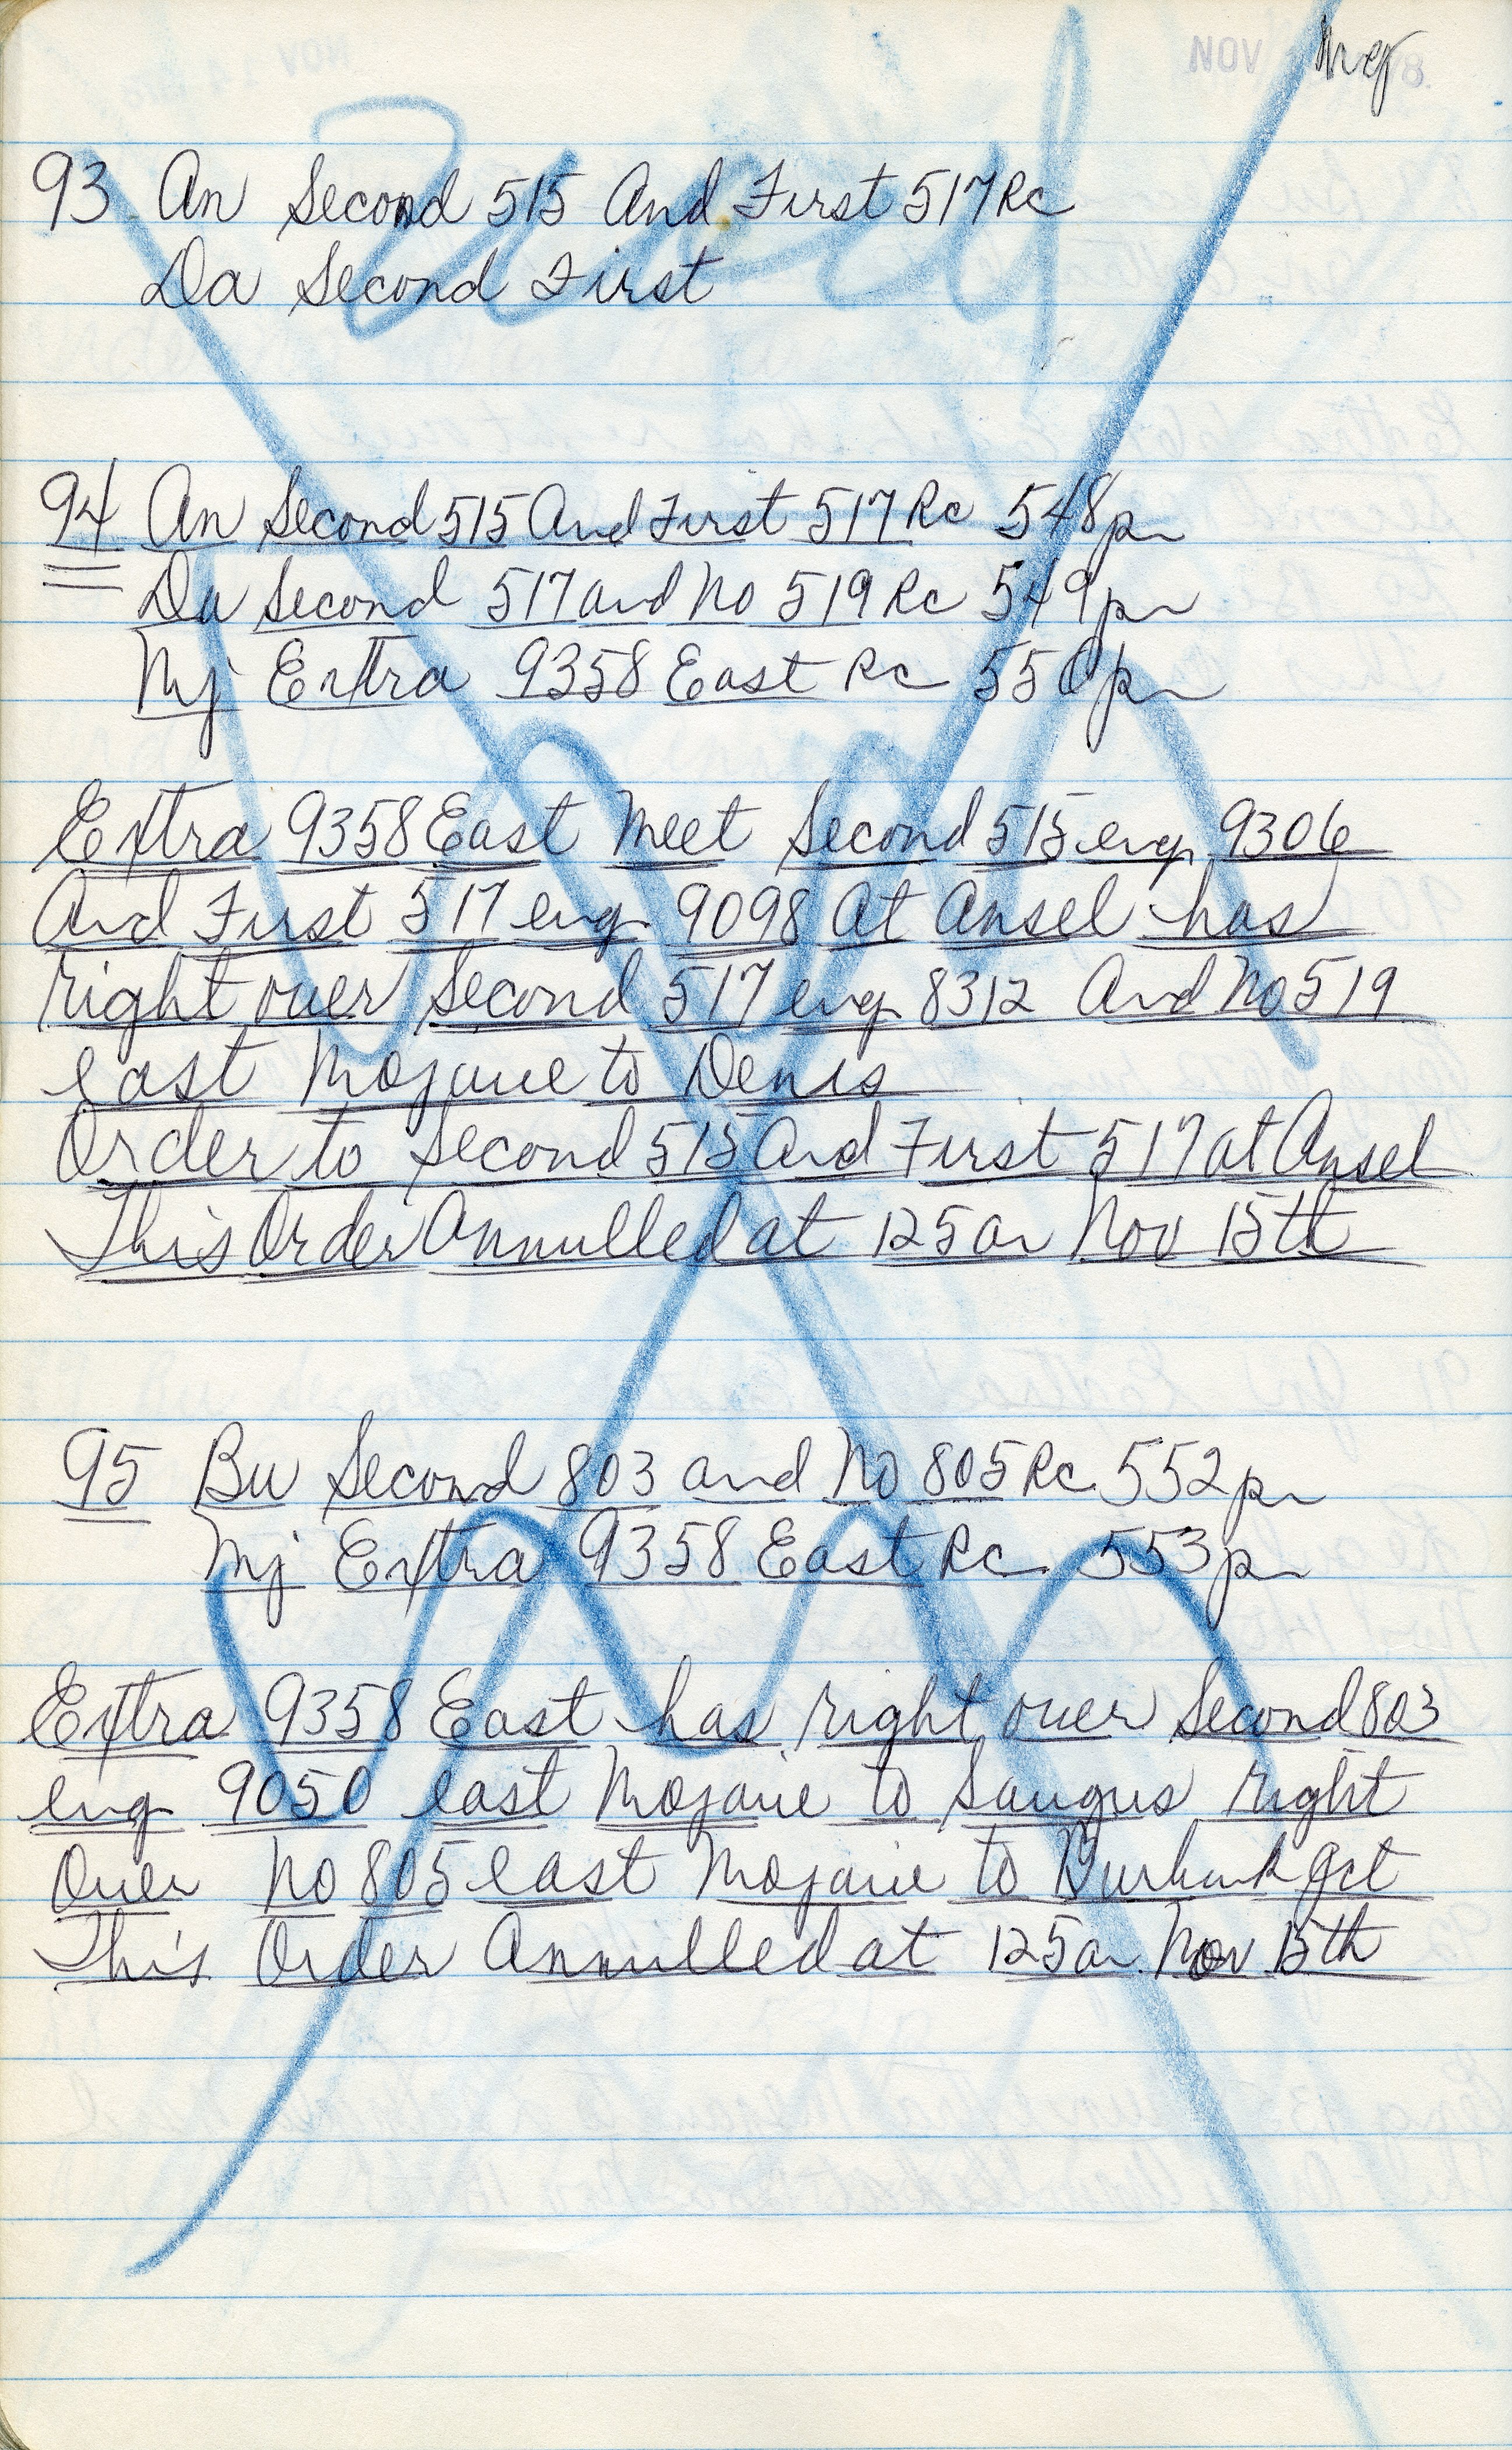 NOV
93 An Second 515 And First 517 Rc
Da Second First
94 An Second 515 And First 517 Rc 548pm
Da Second 517 and No 519 Rc 549pm
Mj Extra 9358 East Rc 550pm
Extra 9358 East Meet Second 515 eng 9306
And First 517 eng 9098 At Ansel has
right over Second 517 eng 8312 And No 519
east Mojave to Denis
Order to Second 515 And First 517 at Ansel
This Order Annulled at 125am Nov 15th
95 Bu Second 803 and No 805 Rc 552pm
Mj Extra 9358 East Rc 553pm
Extra 9358 East has right over Second 803
eng 9050 east Mojave to Saugus right
Over No 805 east Mojave to Burbank Jct
This Order Annulled at 125am Nov 15th